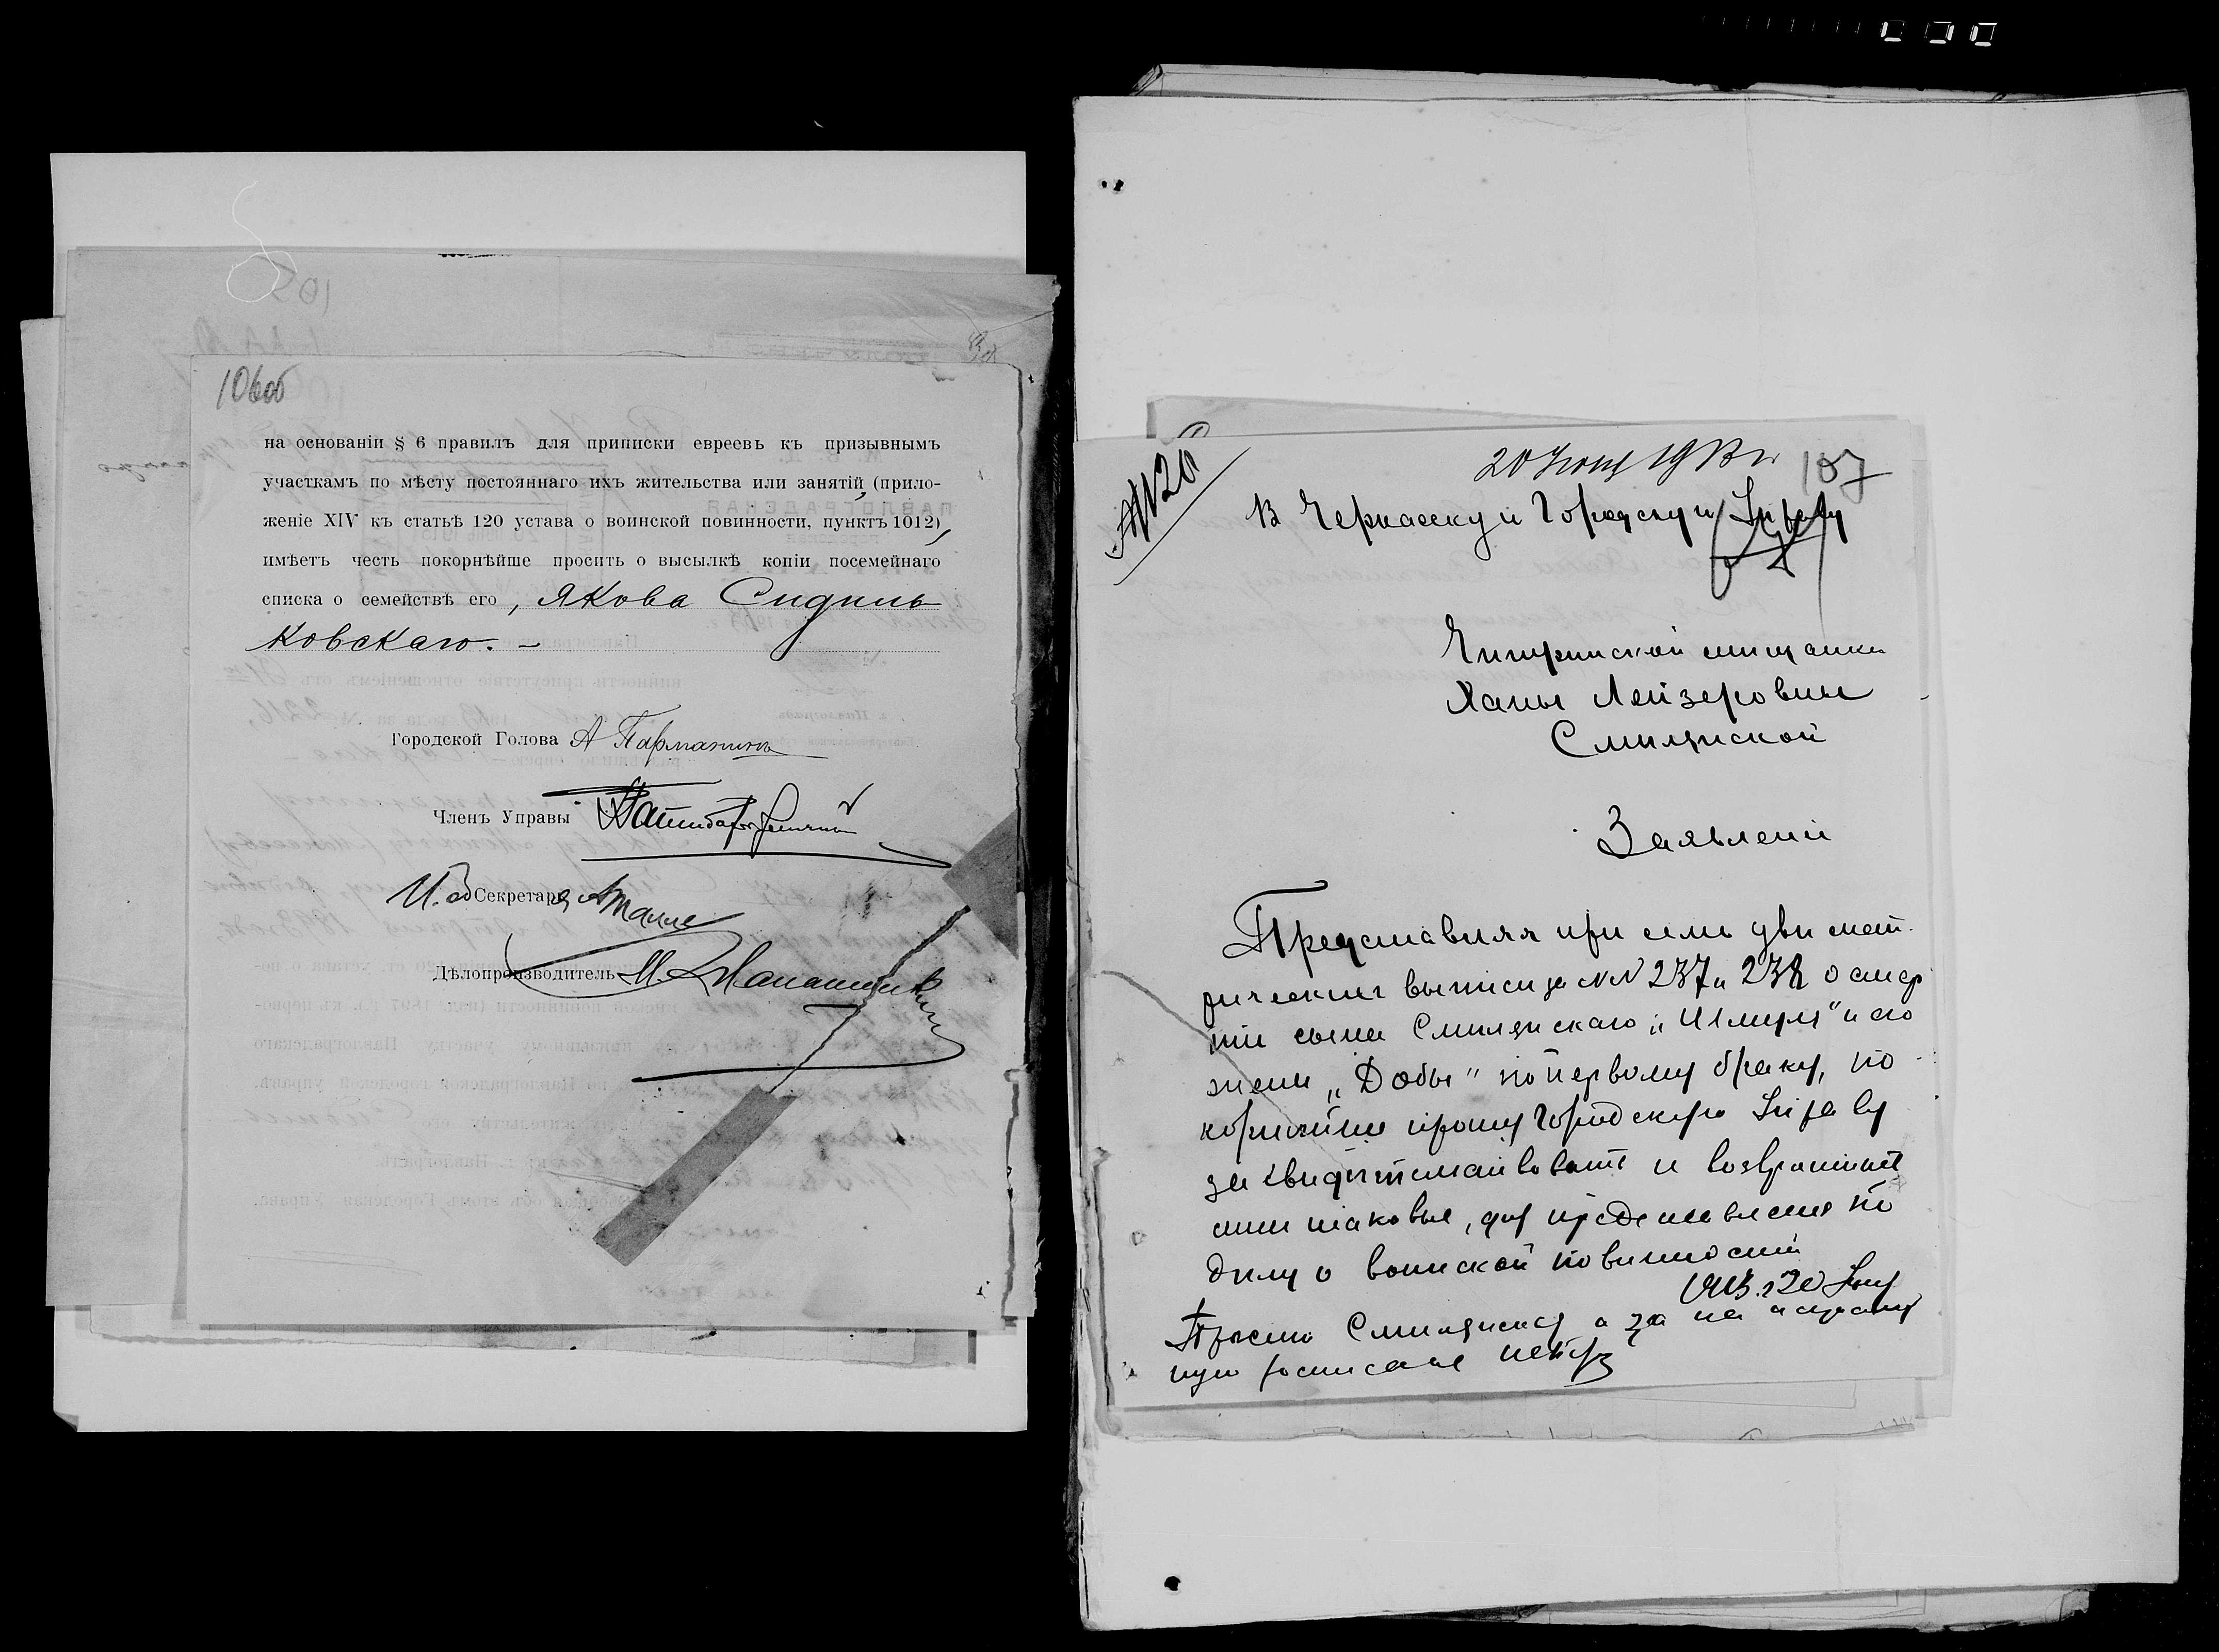 106об
на основаніи § 6 правилъ для приписки евреевъ къ призывнымъ
участкамъ по мѣсту постояннаго ихъ жительства или занятій, (прило-
женіе XIV къ статьѣ 120 устава о воинской повинности, пунктъ 1012),
имѣетъ честь покорнѣйше просить о высылкѣ копіи посемейнаго
списка о семействѣ его, Якова Сидиль
ковскаго. –
Городской Голова А
Членъ Управы
И. об Секретаря
Дѣлопроизводитель М.
107
№20
В Черкасскую Городскую Управу
Чигиринской мещанки
Ханы Лейзеровны
Смилянской
Заявление
Представляя при семъ две мет-
рические выписи за №№ 237 и 238 о смер
ти сына Смилянскаго „Шмуля" и его
жены „Добы" по первому браку, по
корнейше прошу Городскую Управу
засвидетельствовать и возвратить
мне таковые, для представления по
делу о воинской повинности
1913 г 20
Смилянская а за не